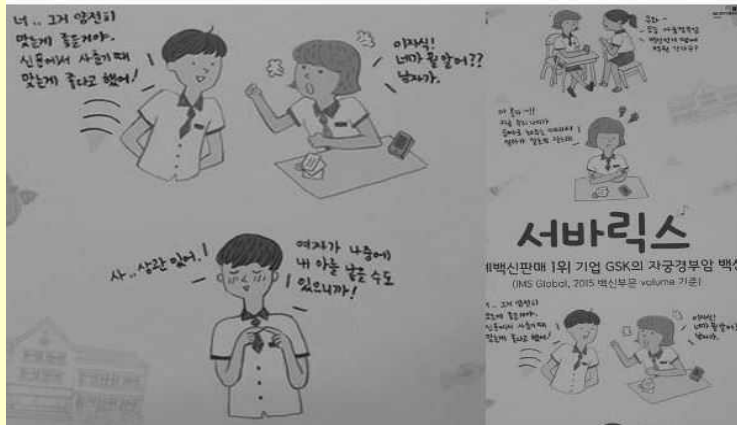 너.. 그거 얌전히
맞는게 좋은거야.
신문에서 사춘기 때
맞는게 좋다고 했어!
이자식!
네가 뭘 알어??
남자가.
사..상관 있어.
여자가 나중에
내 아를 낳을 수도
있으니까!
서바릭스
백신판매 1위 기업 GSK의 자궁경부암
(IMS Global, 2015 백신부문 volume 기준)
그거 얌전히
좋은거야.
신문에서 사춘기 때
맞는게 좋다고 했어!
이자식!
네가 뭘 알어??
남자가.